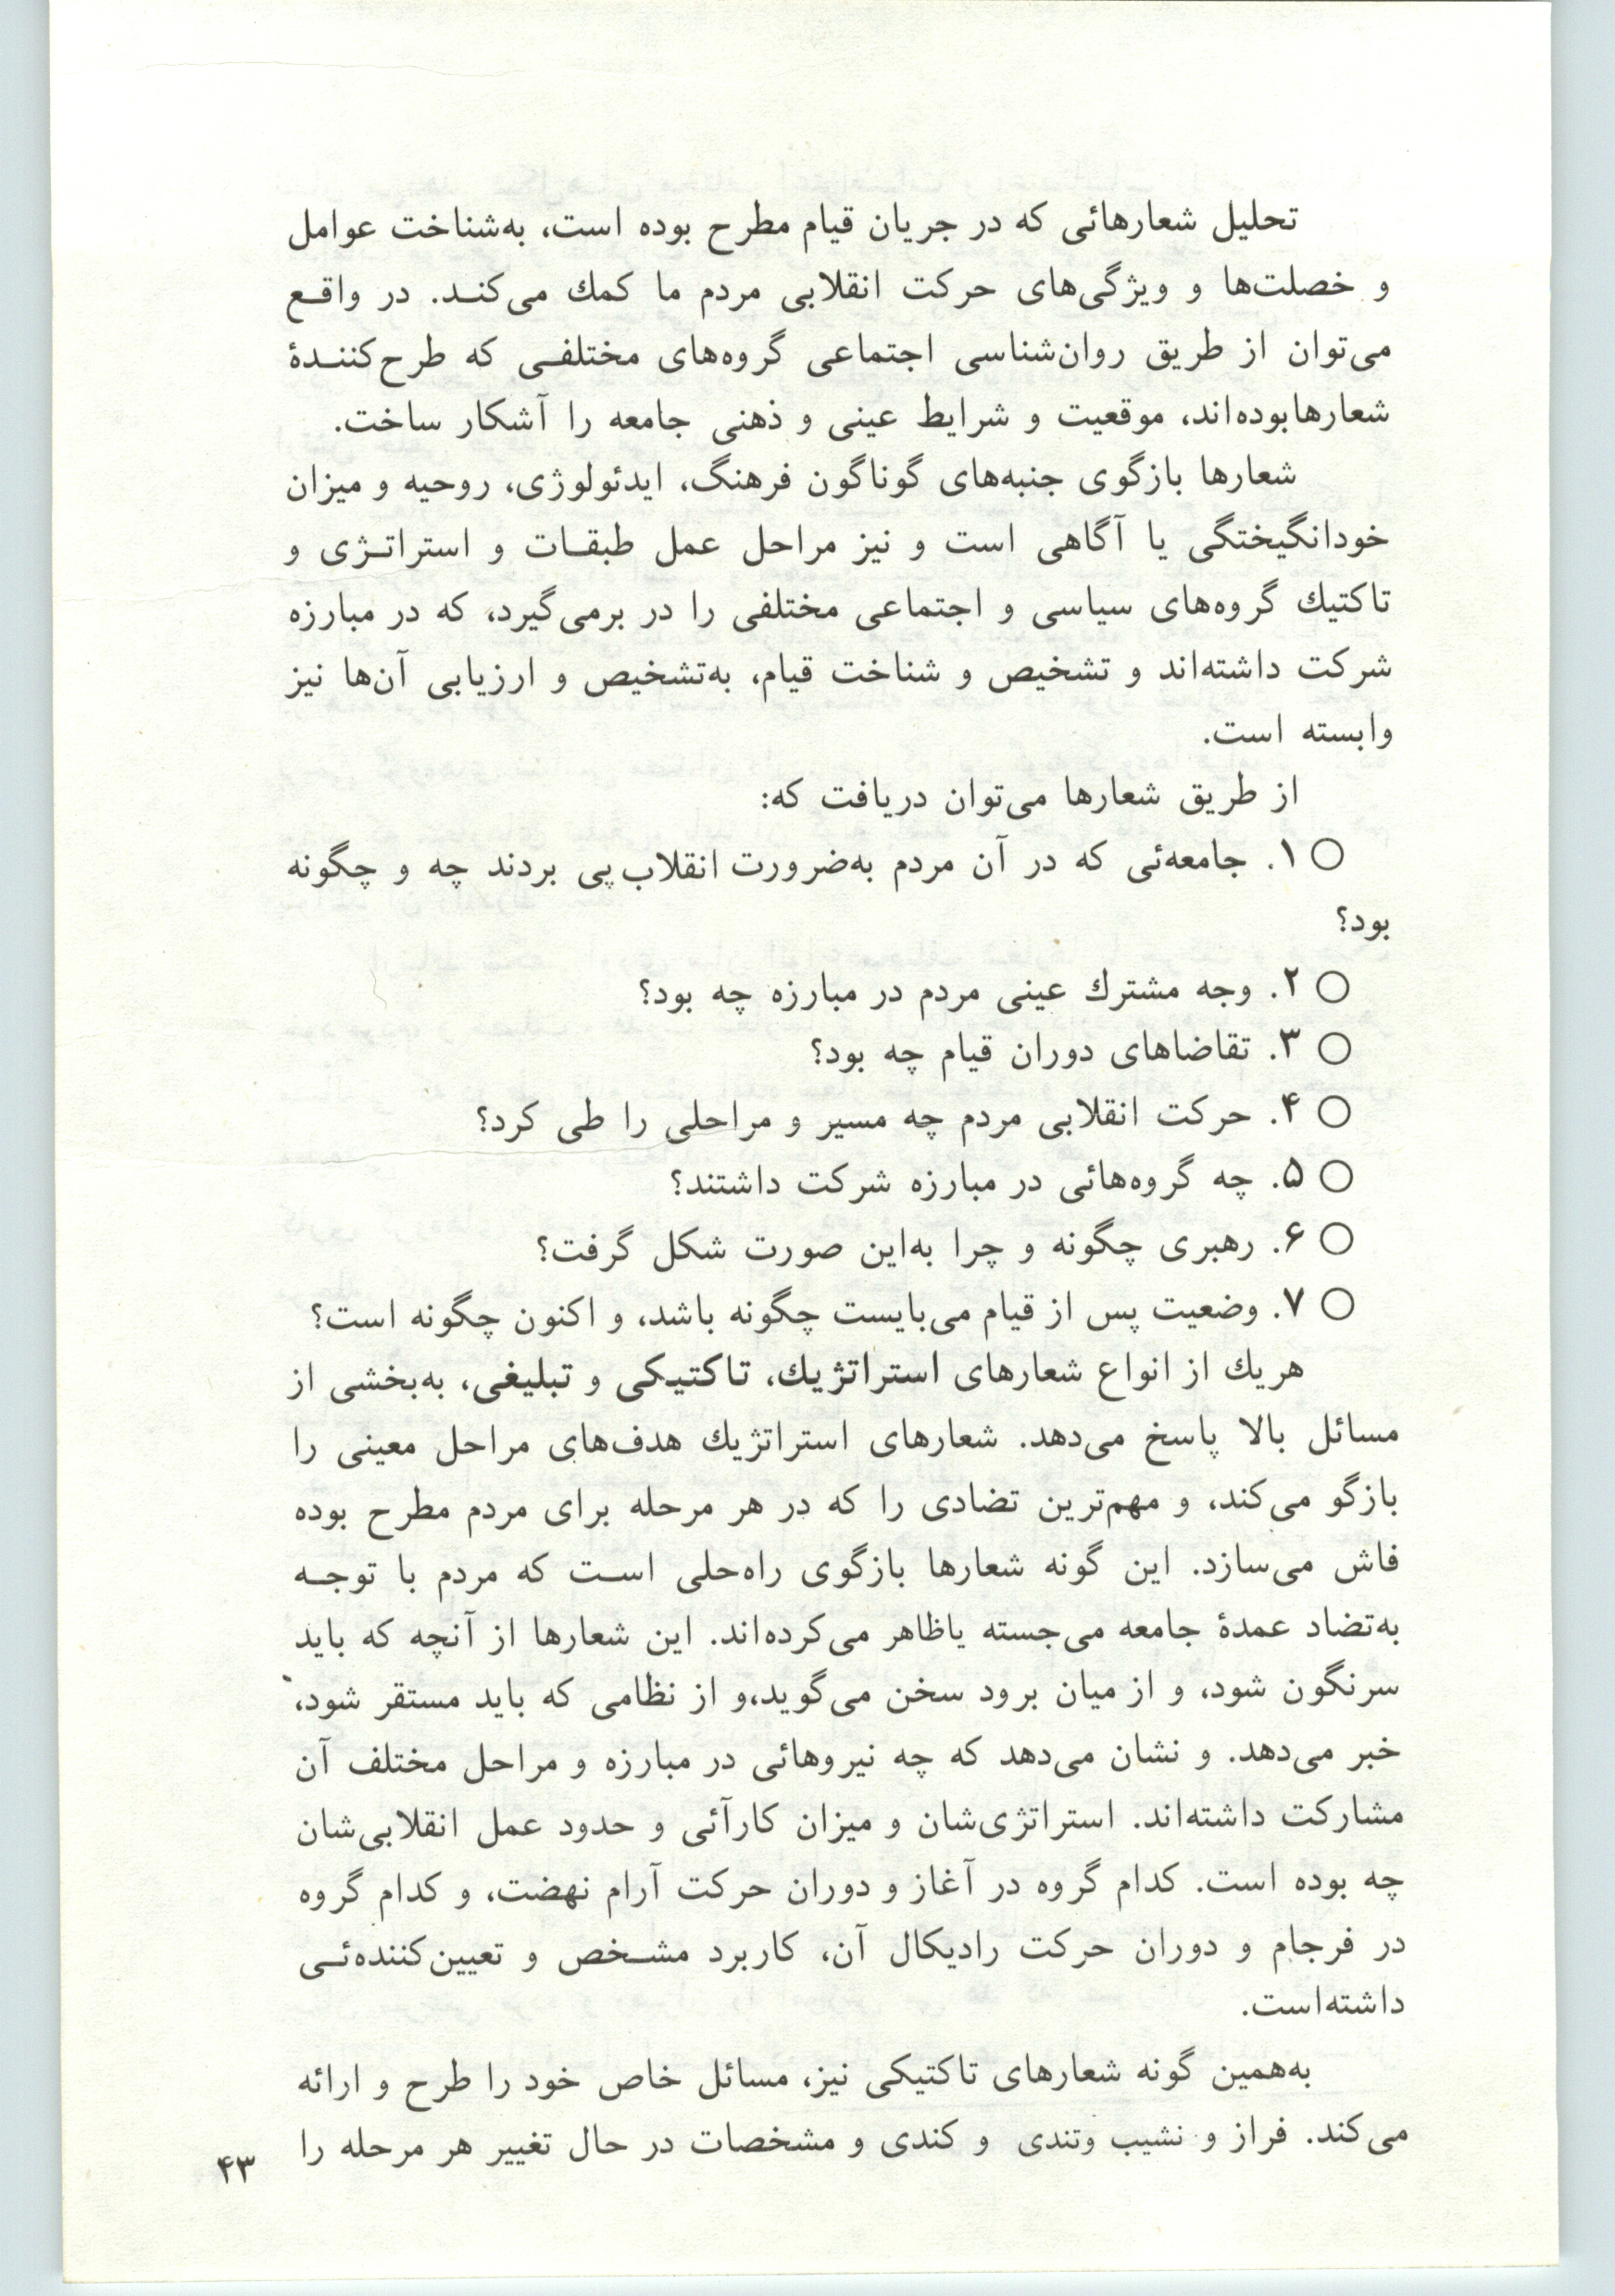 تحلیل شعارهائی که در جریان قیام مطرح بوده است، به‌شناخت عوامل
و خصلت‌ها و ویژگی‌های حرکت انقلابی مردم ما کمك می‌کند. در واقع
می‌توان از طریق روان‌شناسی اجتماعی گروه‌های مختلفی که طرح‌کنندۀ
شعارهابوده‌اند، موقعیت و شرایط عینی و ذهنی جامعه را آشکار ساخت.
شعارها بازگوی جنبه‌های گوناگون فرهنگ، ایدئولوژی، روحیه و میزان
خودانگیختگی یا آگاهی است و نیز مراحل عمل طبقات و استراتژی و
تاکتیك گروه‌های سیاسی و اجتماعی مختلفی را در برمی‌گیرد، که در مبارزه
شرکت داشته‌اند و تشخیص و شناخت قیام، به‌تشخیص و ارزیابی آن‌ها نیز
وابسته است.
از طریق شعارها می‌توان دریافت که:
○ ۱. جامعه‌ئی که در آن مردم به‌ضرورت انقلاب‌پی بردند چه و چگونه
بود؟
○ ۲. وجه مشترك عینی مردم در مبارزه چه بود؟
○ ۳. تقاضاهای دوران قیام چه بود؟
○ ۴. حرکت انقلابی مردم چه مسیر و مراحلی را طی کرد؟
○ ۵. چه گروه‌هائی در مبارزه شرکت داشتند؟
○ ۶. رهبری چگونه و چرا به‌این صورت شکل گرفت؟
○ ۷. وضعیت پس از قیام می‌بایست چگونه باشد، و اکنون چگونه است؟
هریك از انواع شعارهای استراتژیك، تاکتیکی و تبلیغی، به‌بخشی از
مسائل بالا پاسخ می‌دهد. شعارهای استراتژیك هدف‌های مراحل معینی را
بازگو می‌کند، و مهم‌ترین تضادی را که در هر مرحله برای مردم مطرح بوده
فاش می‌سازد. این گونه شعارها بازگوی راه‌حلی است که مردم با توجه
به‌تضاد عمدۀ جامعه می‌جسته یاظاهر می‌کرده‌اند. این شعارها از آنچه که باید
سرنگون شود، و از میان برود سخن می‌گوید،و از نظامی که باید مستقر شود،
خبر می‌دهد. و نشان می‌دهد که چه نیروهائی در مبارزه و مراحل مختلف آن
مشارکت داشته‌اند. استراتژی‌شان و میزان کارآئی و حدود عمل انقلابی‌شان
چه بوده است. کدام گروه در آغاز و دوران حرکت آرام نهضت، و کدام گروه
در فرجام و دوران حرکت رادیکال آن، کاربرد مشخص و تعیین‌کننده‌ئی
داشته‌است.
به‌همین گونه شعارهای تاکتیکی نیز، مسائل خاص خود را طرح و ارائه
می‌کند. فراز و نشیب وتندی و کندی و مشخصات در حال تغییر هر مرحله را
۴۳